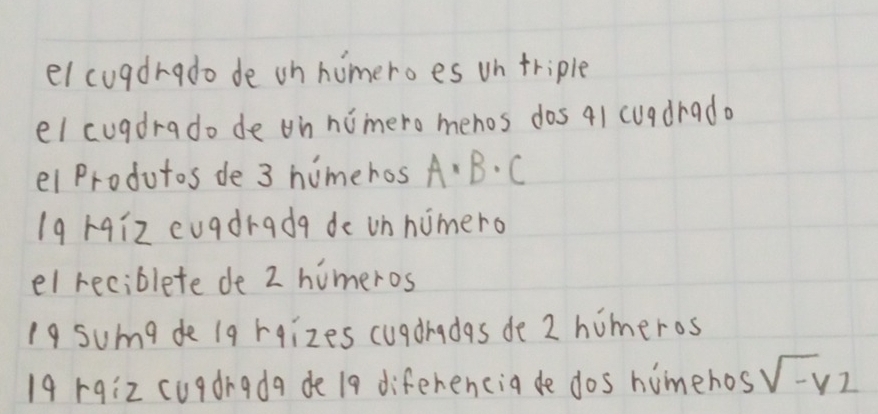 el cuadrado de un número es un triple
el cuadrado de un número menos dos al cuadrado
el Produtos de 3 números A·B·C
la raíz cuadrada de un número
el reciblete de 2 números
la suma de la raízes cuadradas de 2 números
la raíz cuadrada de la diferencia de dos números √-v2